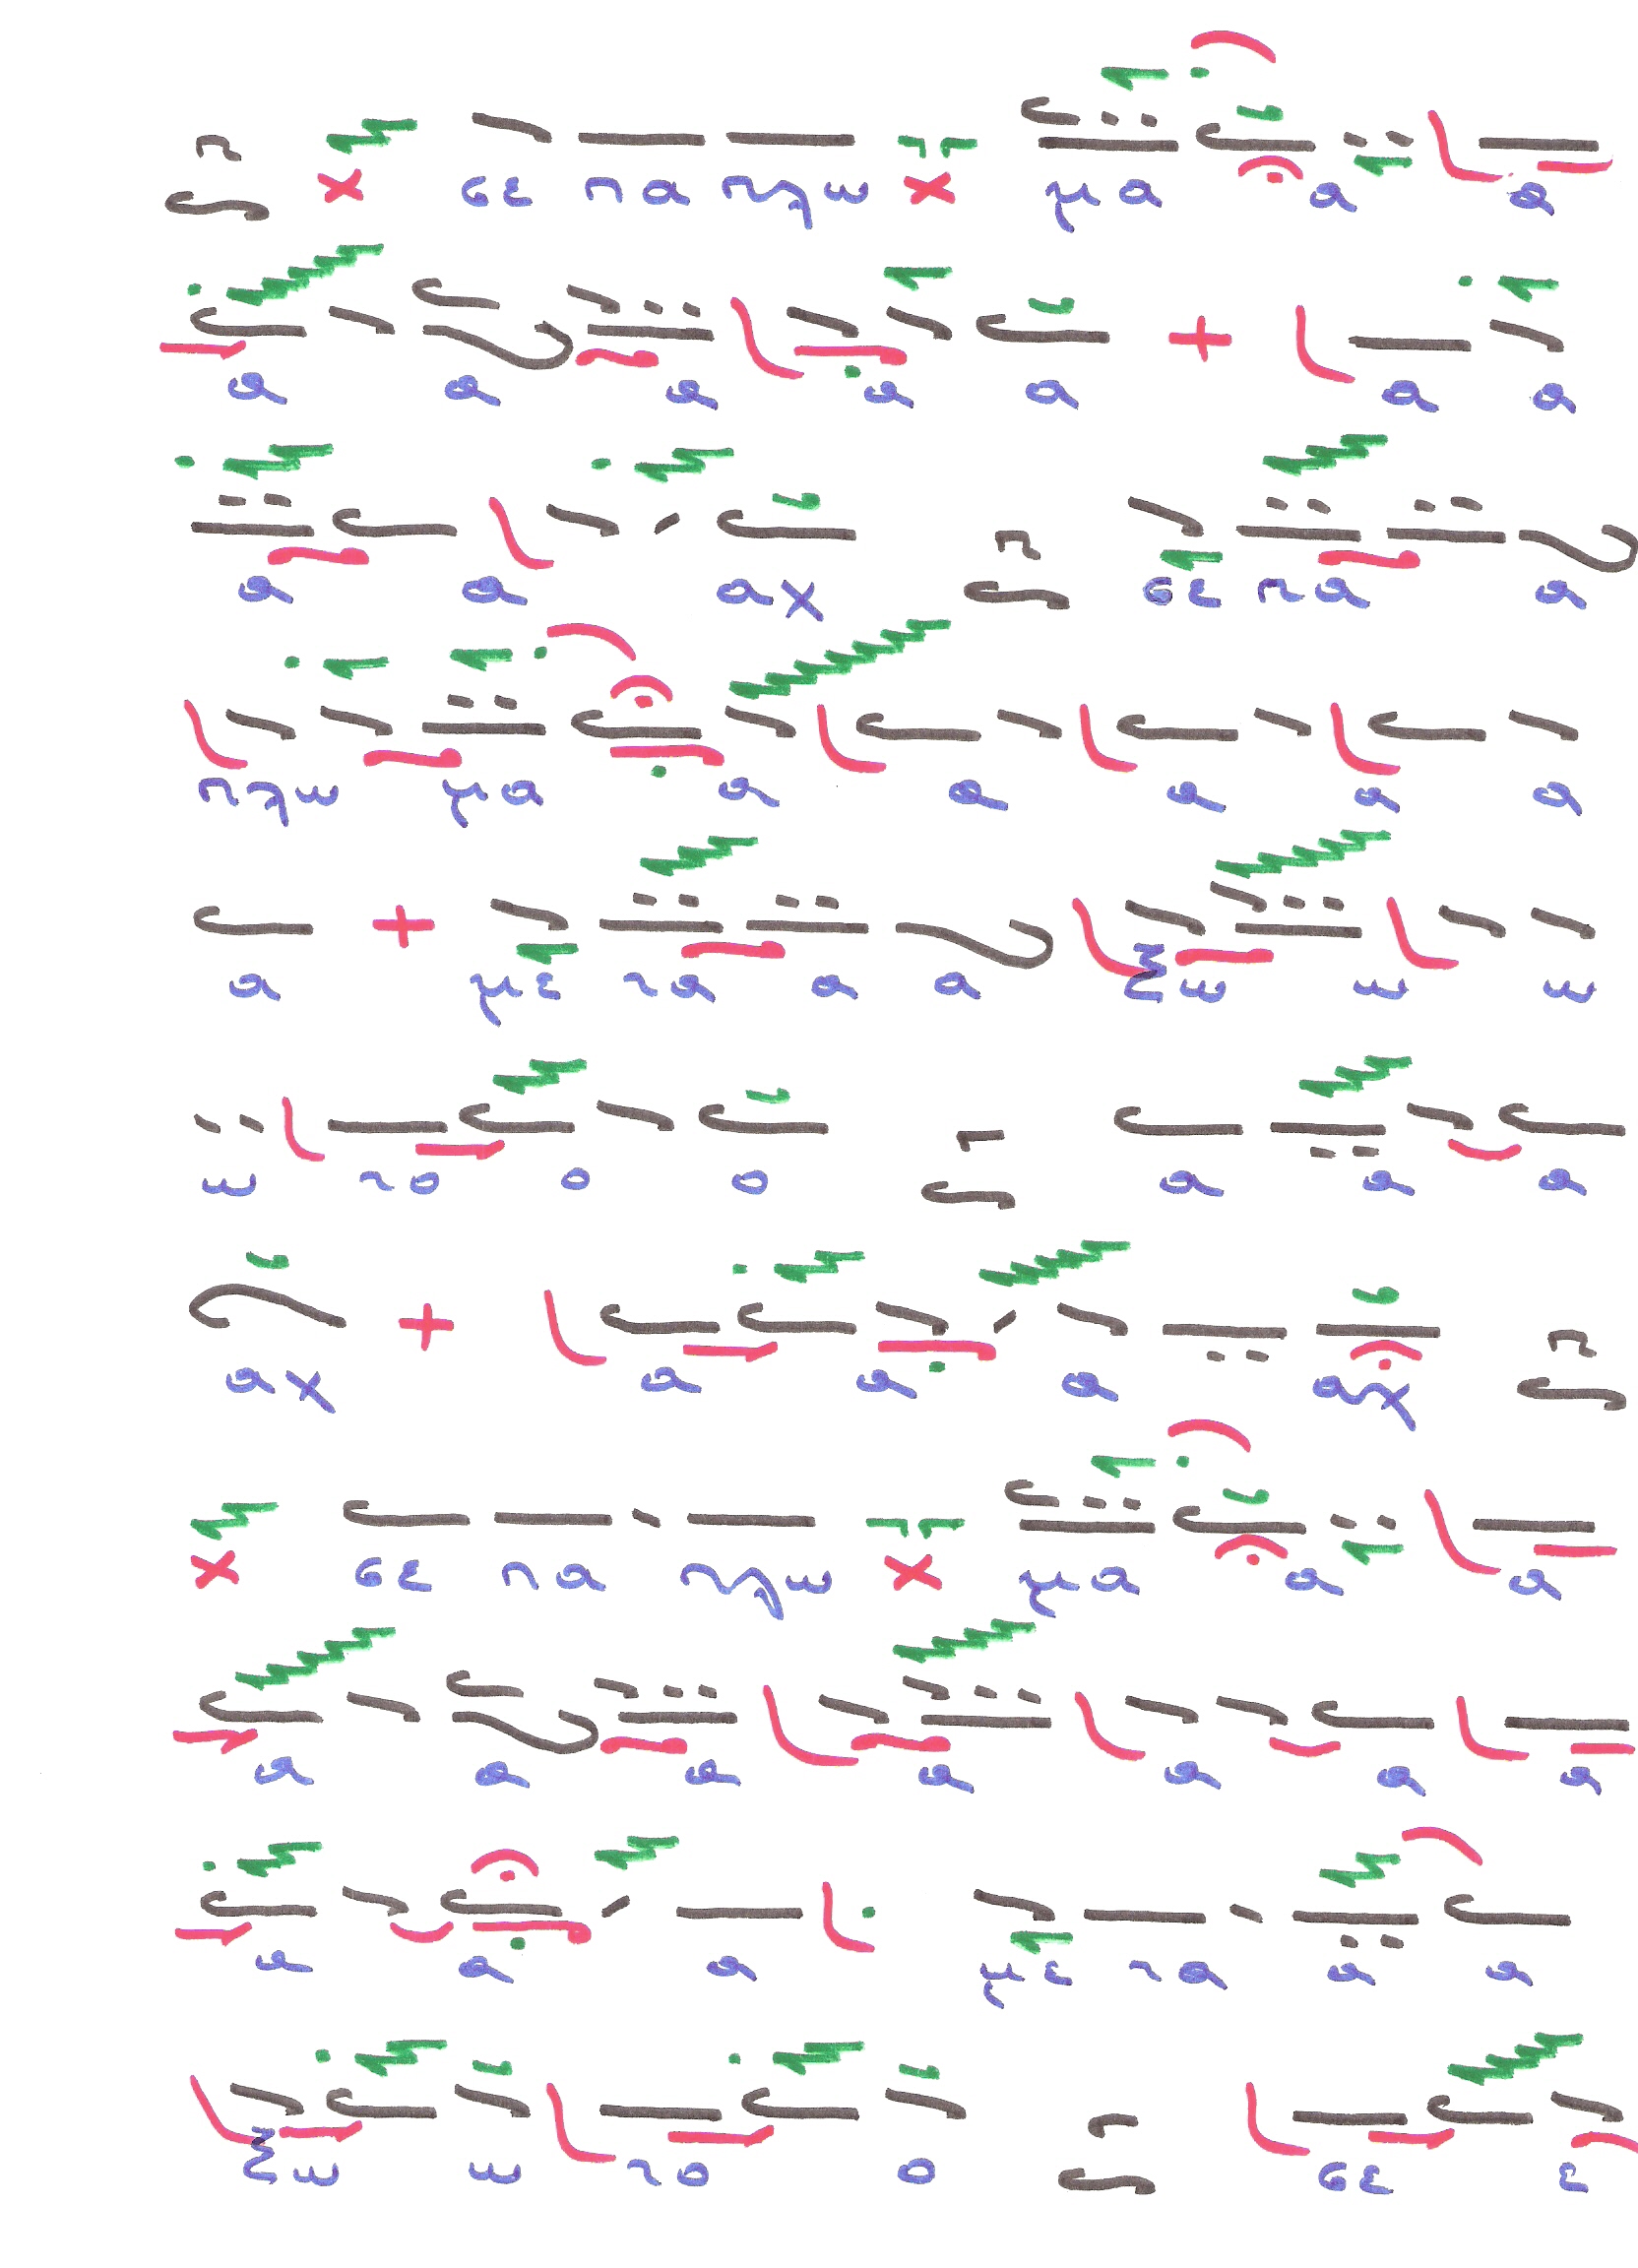 σε πα πλω μα α α
α α α α α α α
α α αχ σε πα α
πλω μα α α α α α
α με γα α α ξω ω ω
ω γο ο ο α α α
αχ α α α αχ
σε πα πλω μα α α
α α α α α α α
α α α με γα α α
ξω ω γο ο σε ε